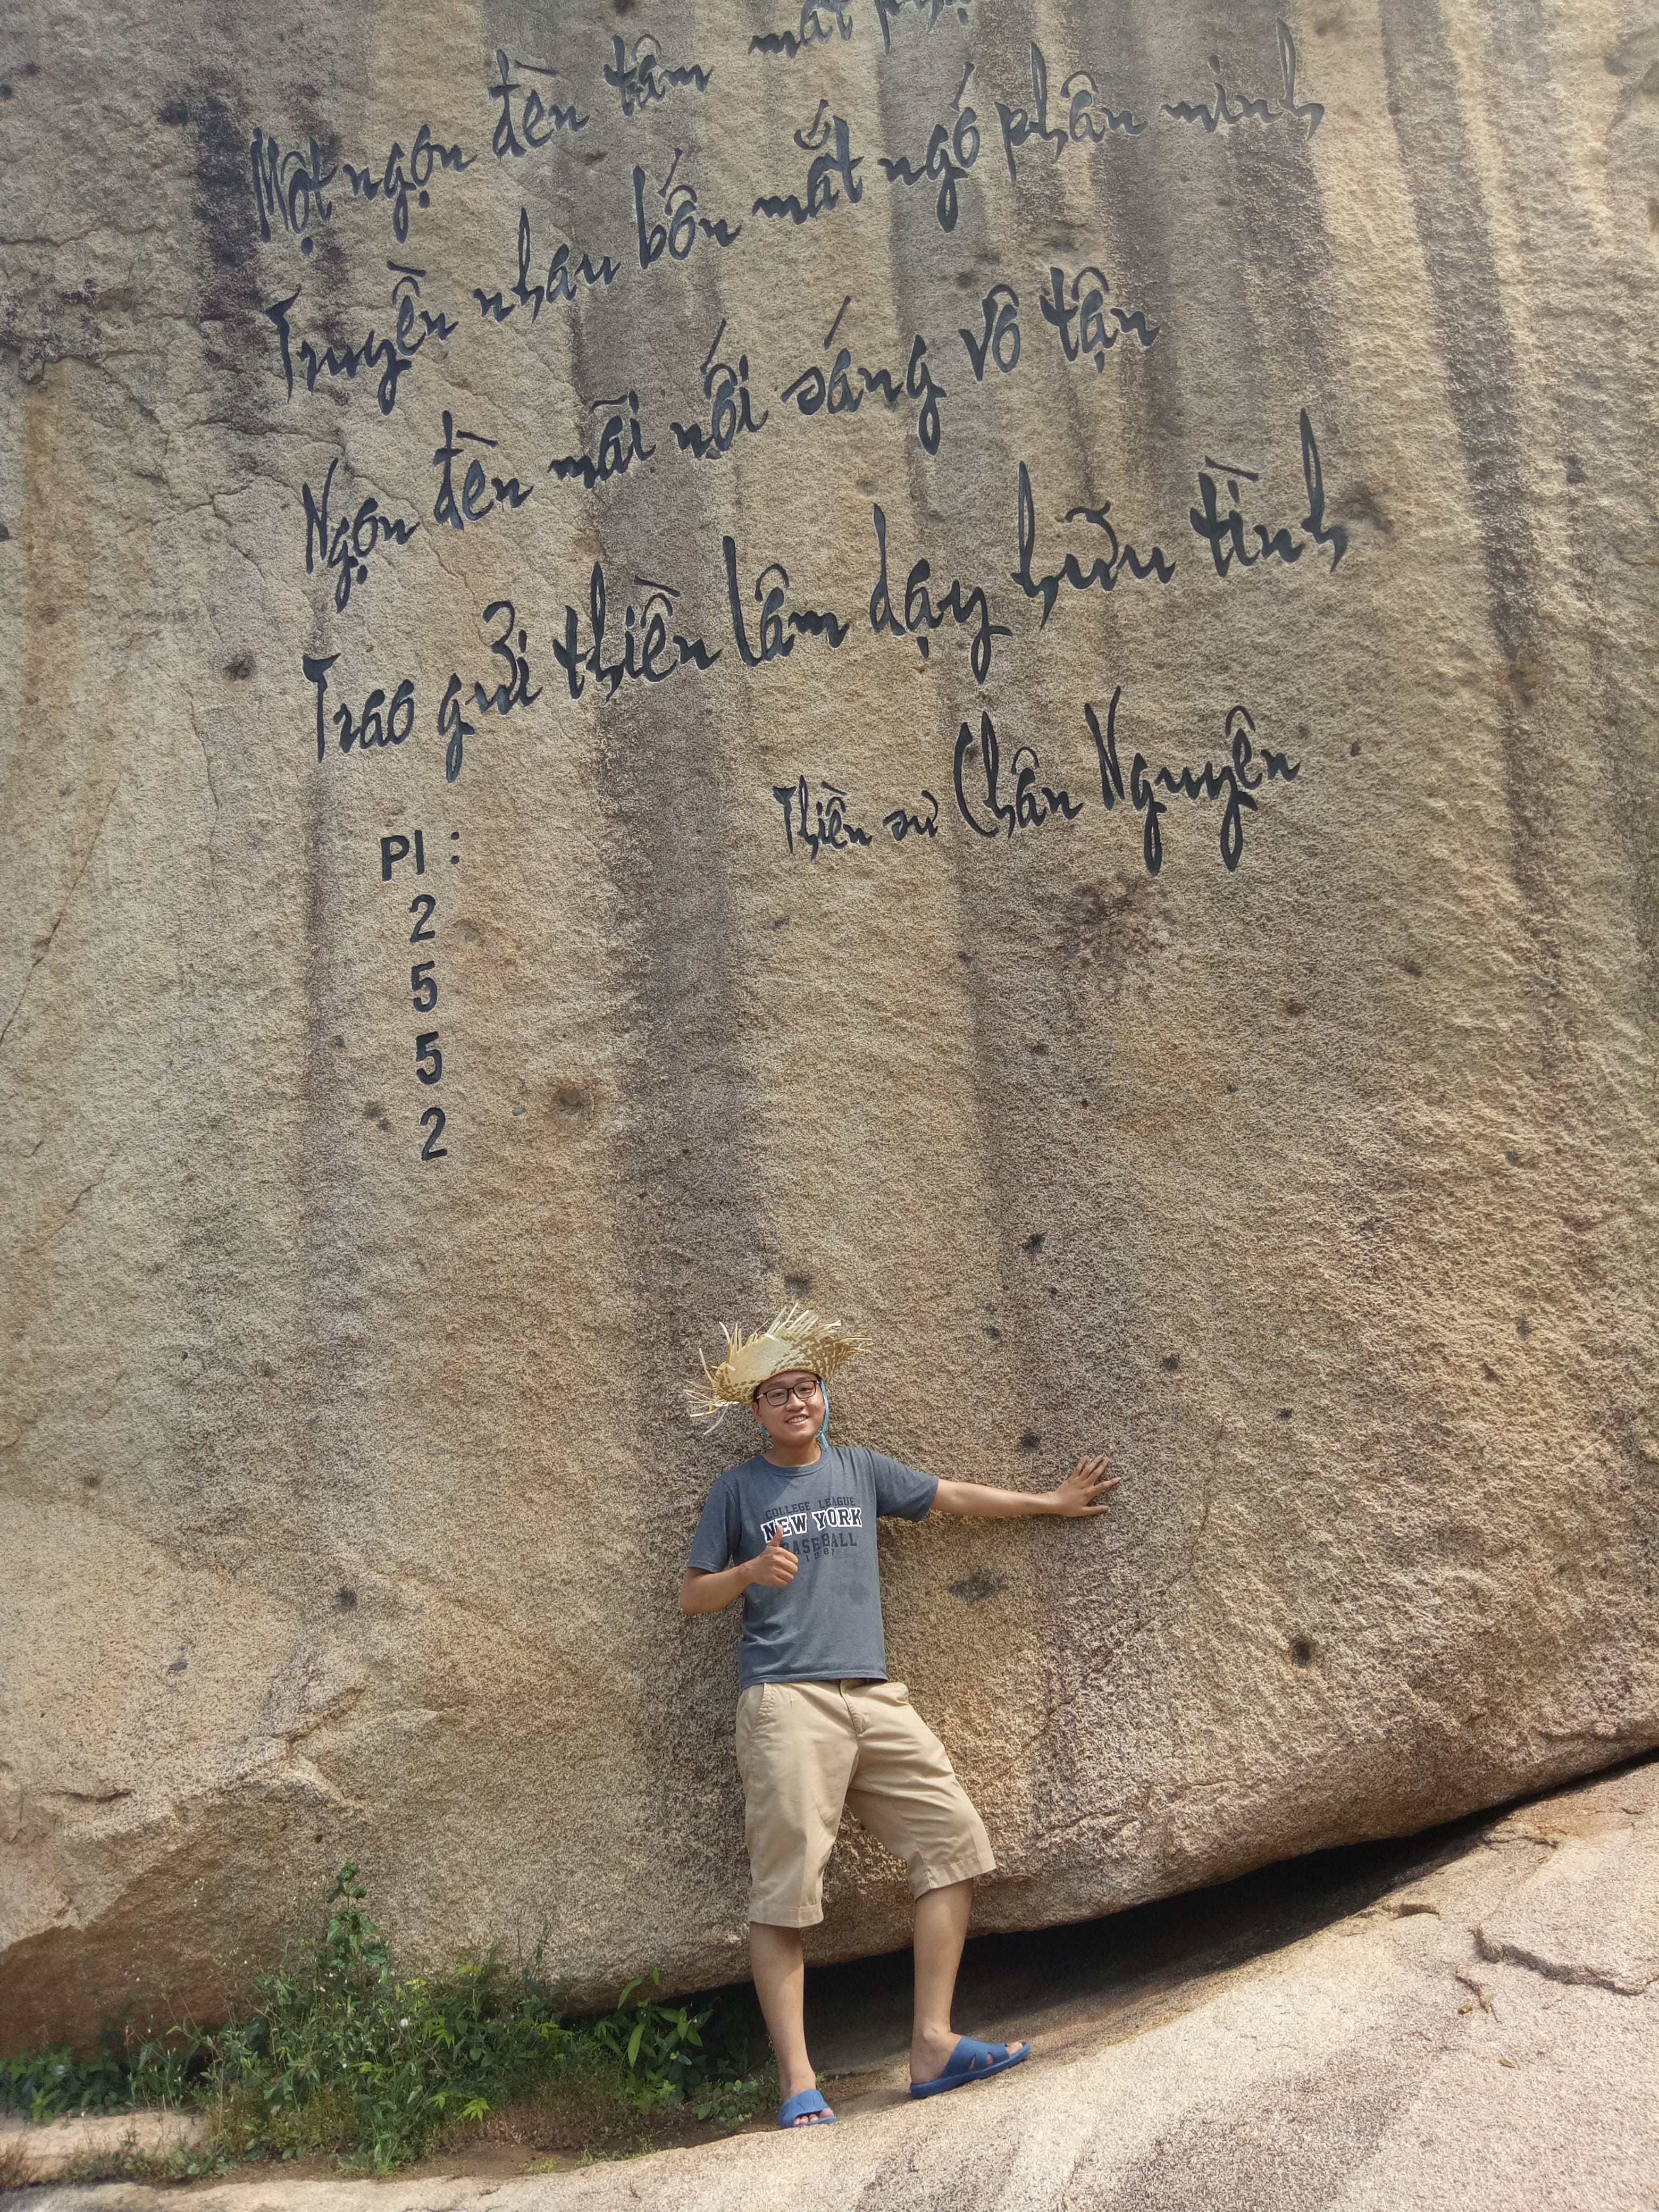 Một ngọn đèn tâm mắt
Truyền nhau bốn mắt ngó phân minh
Ngọn đèn mãi nối sáng vô tận
Trao gửi thiền lâm dạy hữu tình
Thiền sư Chân Nguyên
Pl :
2
5
5
2
COLLEGE LEAGUE
NEW YORK
BASEBALL